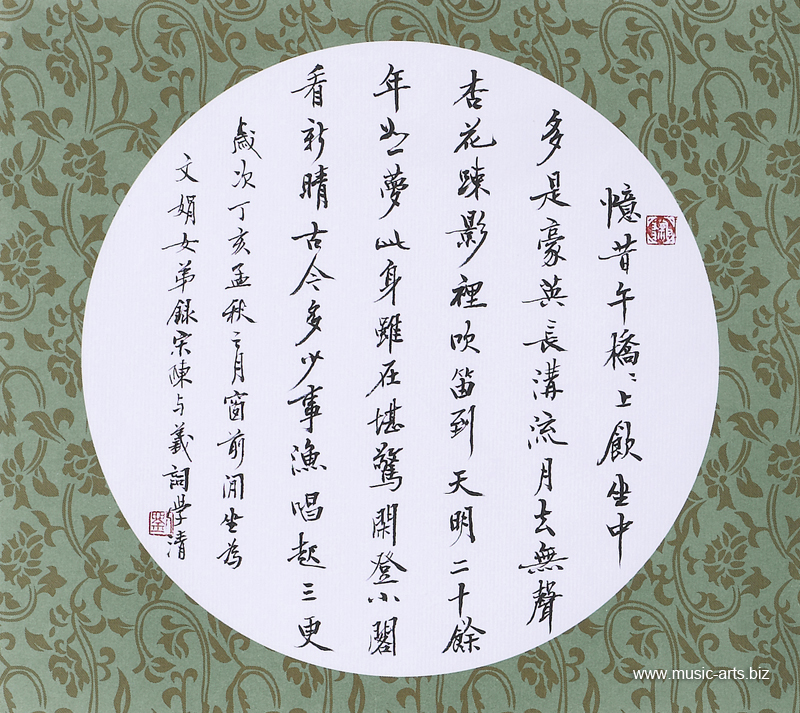 憶昔午橋〻上飲坐中
多是豪英長溝流月去無聲
杏花踈影裡吹笛到天明二十餘
年如夢此身雖在堪驚閑登小閣
看新晴古今多少事漁唱起三更
歲次丁亥孟秋之月窗前閒坐為
文娟女弟錄宋陳与義詞學清
www.music-arts.biz